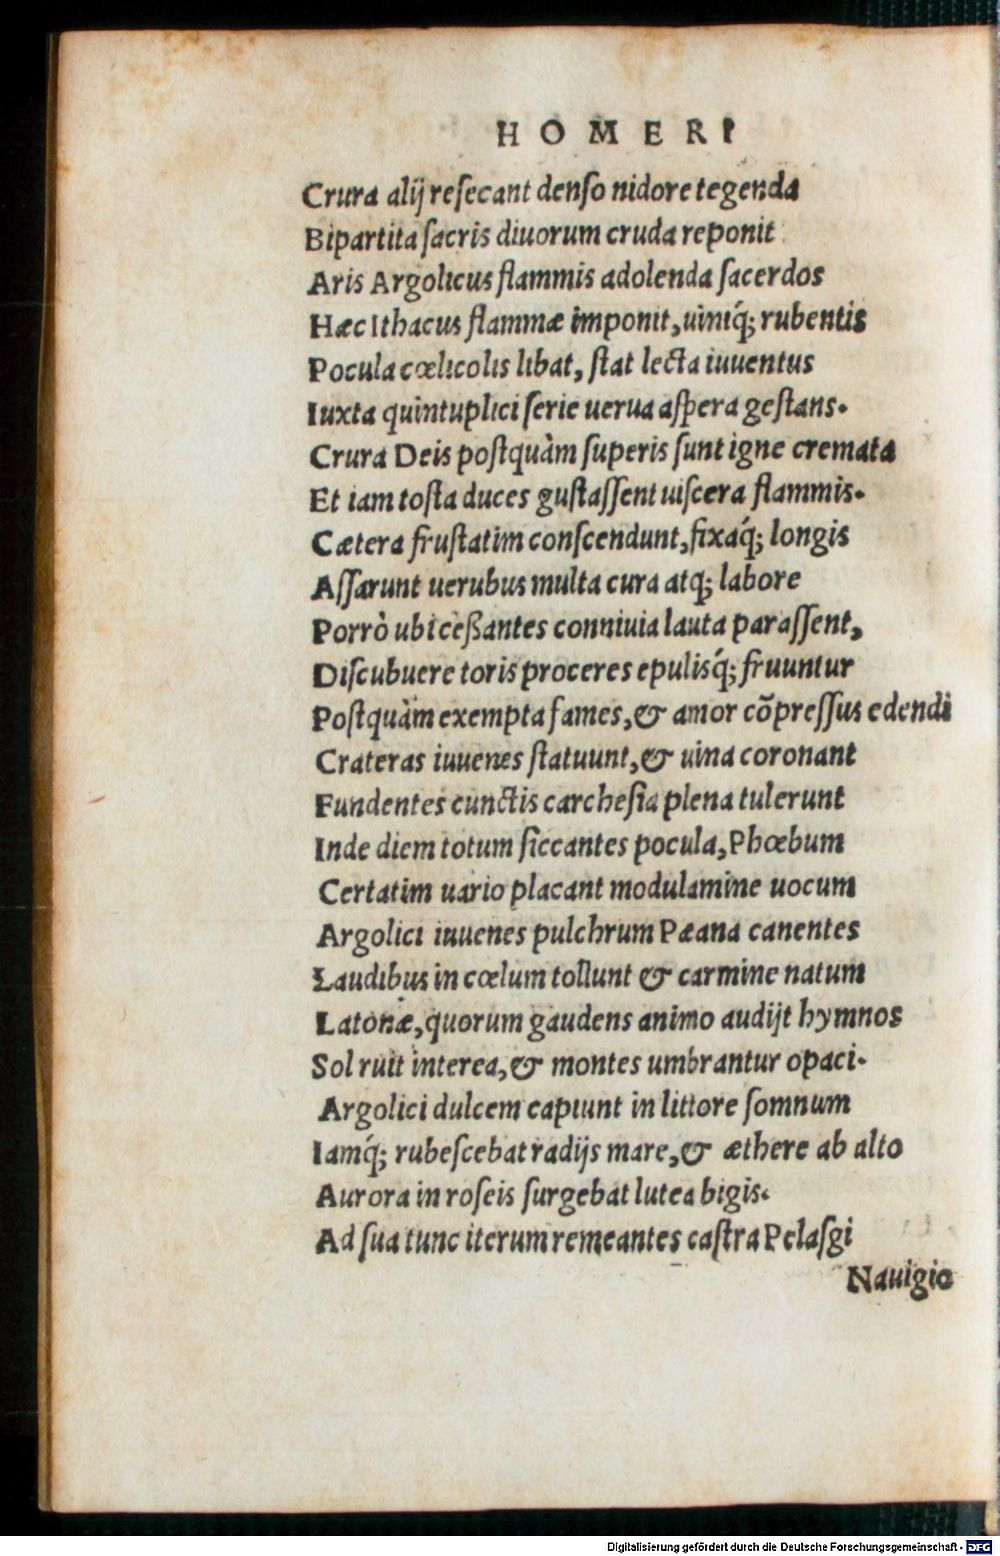 HOMERI
Crura alij reſecant denſo nidore tegenda
Bipartita ſacris diuorum cruda reponit
Aris Argolicus flammis adolenda ſacerdos
Hæc Ithacus flammæ imponit, uiniq́; rubentis
Pocula cœlicolis libat, ſtat lecta iuuentus
Iuxta quintuplici ſerie uerua aſpera geſtans.
Crura Deis poſtquàm ſuperis ſunt igne cremata
Et iam toſta duces guſtaſſent uiſcera flammis.
Cætera fruſtatim conſcendunt, fixaq́; longis
Aſſarunt uerubus multa cura atq; labore
Porrò ubi ceßantes conniuia lauta paraſſent,
Diſcubuere toris proceres epulisq́; fruuntur
Poſtquàm exempta fames, & amor cõpreſſus edendi
Crateras iuuenes ſtatuunt, & uina coronant
Fundentes cunctis carcheſia plena tulerunt
Inde diem totum ſiccantes pocula, Phœbum
Certatim uario placant modulamine uocum
Argolici iuuenes pulchrum Pæana canentes
Laudibus in cœlum tollunt & carmine natum
Latonæ, quorum gaudens animo audijt hymnos
Sol ruit interea, & montes umbrantur opaci.
Argolici dulcem capiunt in littore ſomnum
Iamq́; rubeſcebat radijs mare, & æthere ab alto
Aurora in roſeis ſurgebat lutea bigis.
Ad ſua tunc iterum remeantes caſtra Pelaſgi
Nauigio
Digitalisierung gefördert durch die Deutsche Forschungsgemeinschaft - DFG